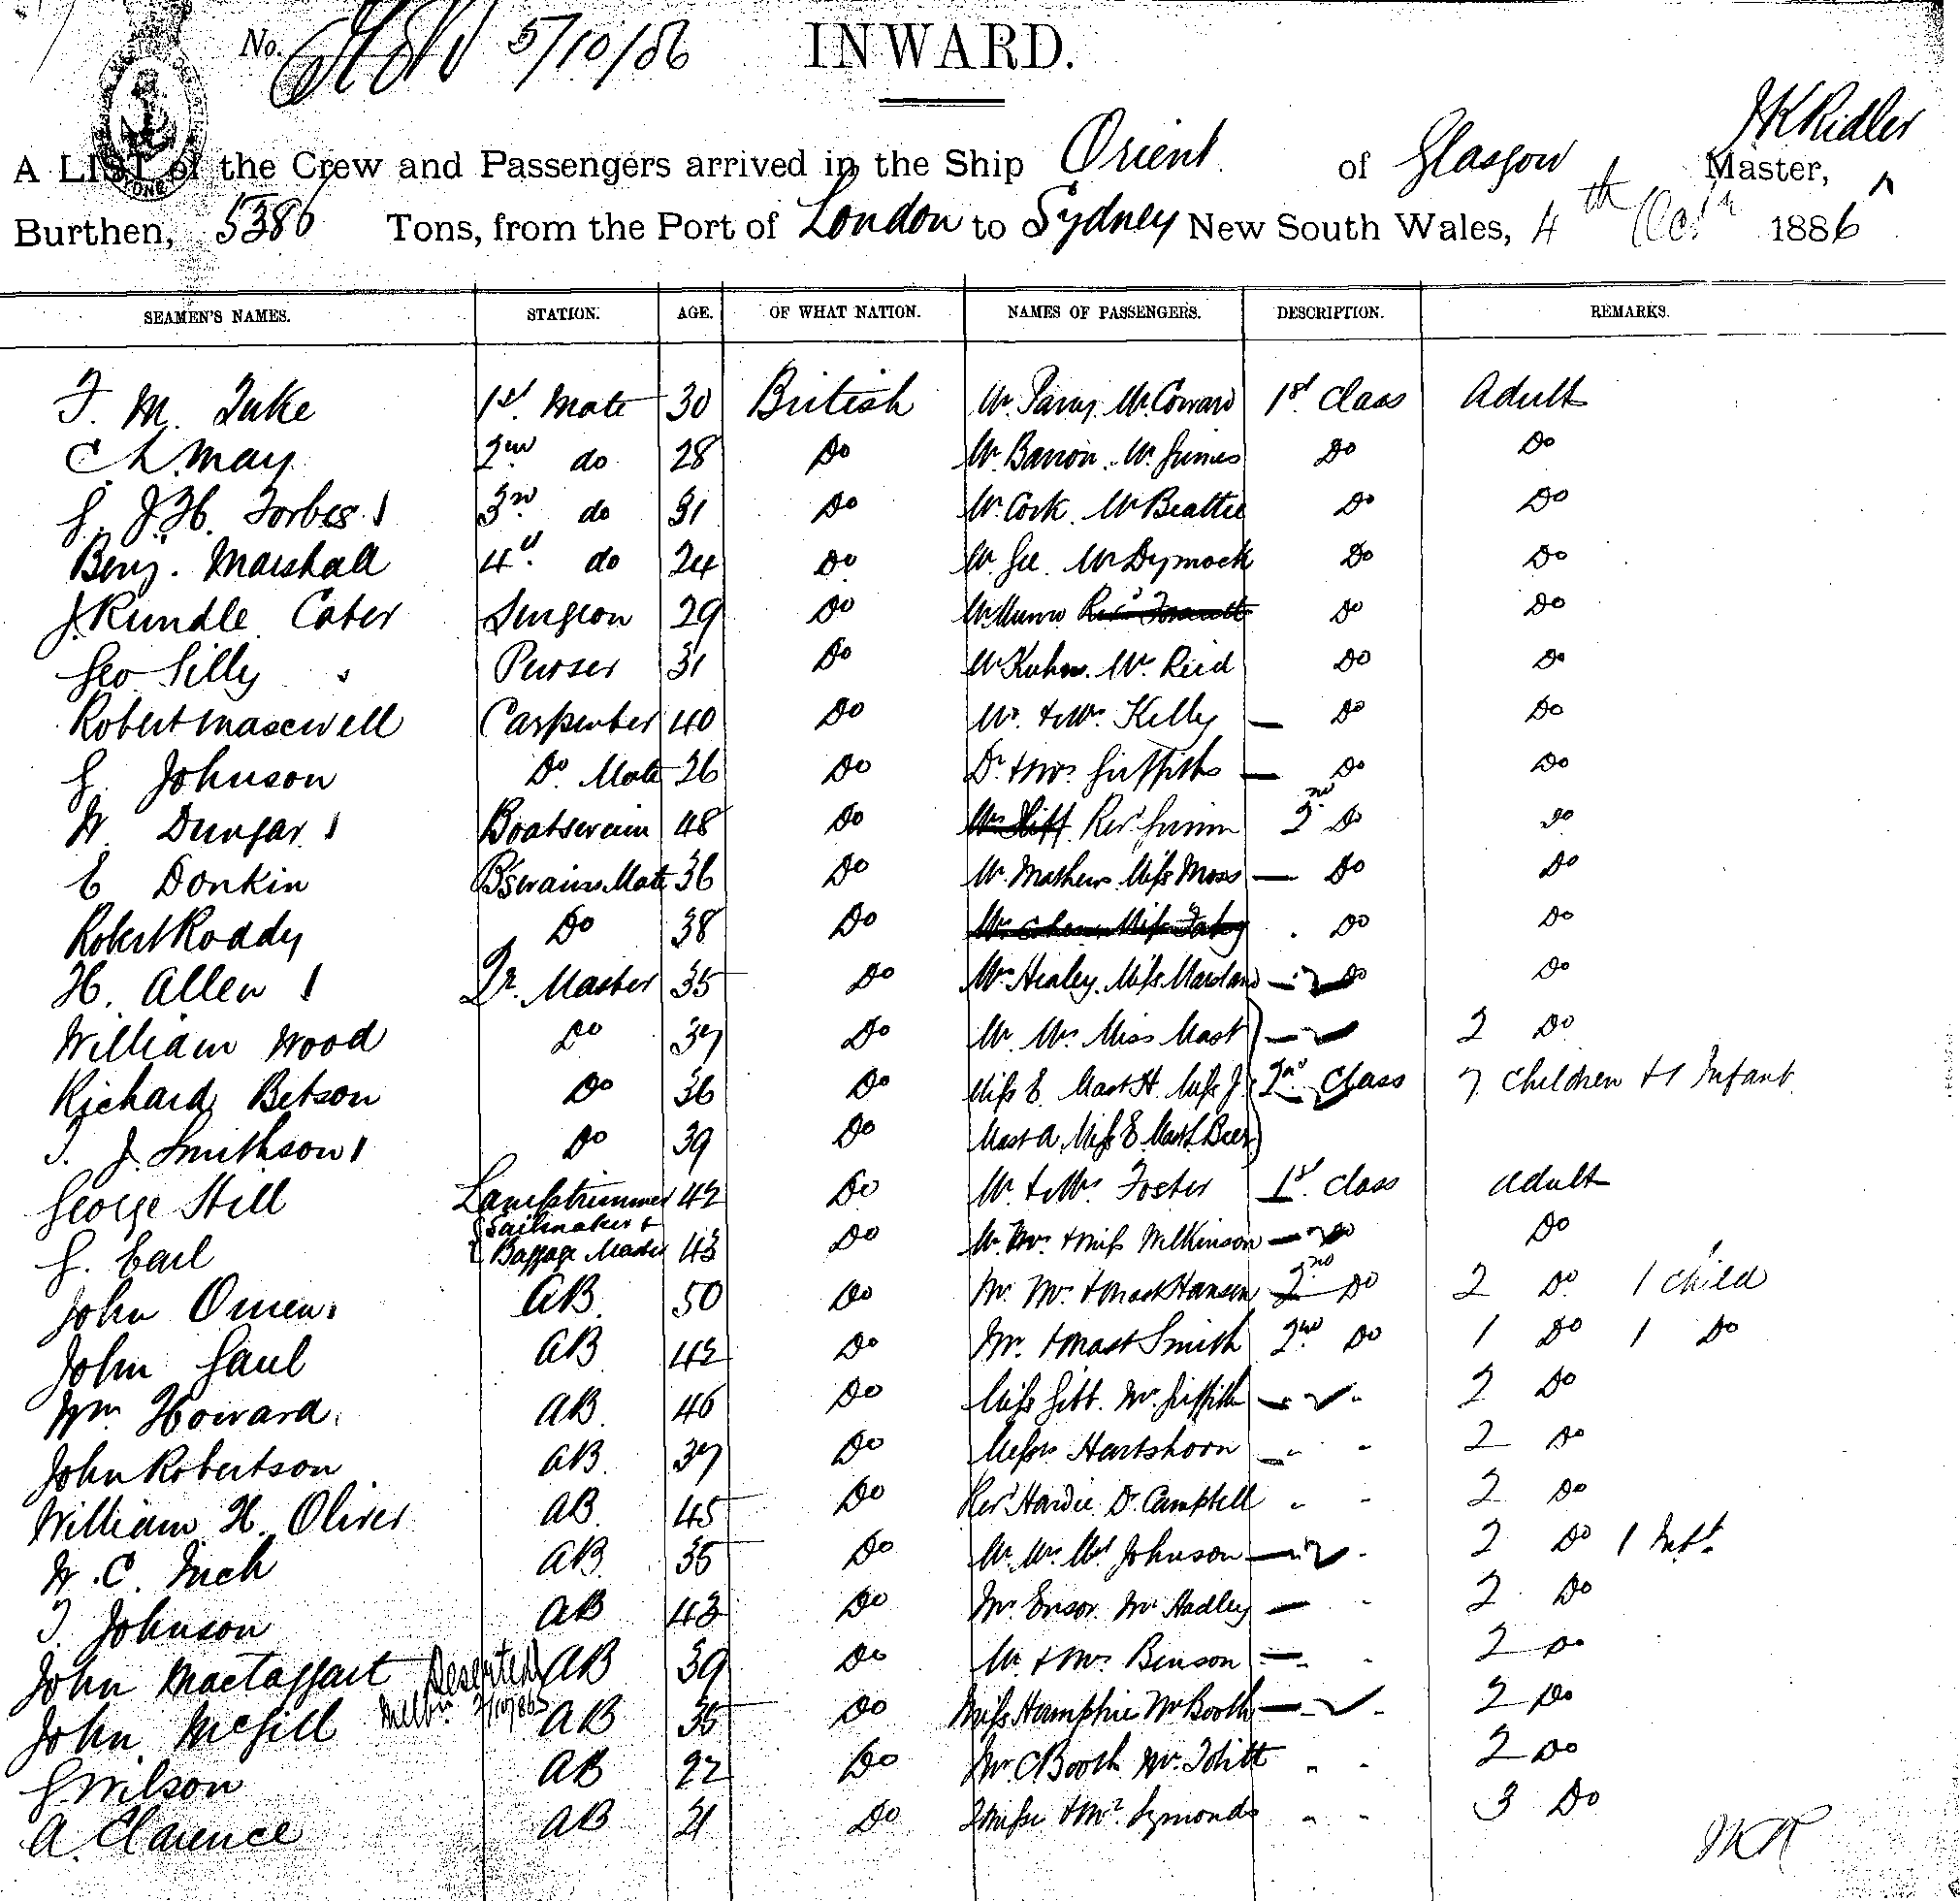 No. 5/10/86 INWARD.
J K Ridler
A LIST of the Crew and Passengers arrived in the Ship Orient of Glasgow Master,
Burthen, 5386 Tons, from the Port of London to Sydney New South Wales, 4th Octr 1886
SEAMEN'S NAMES. STATION. AGE. OF WHAT NATION. NAMES OF PASSENGERS. DESCRIPTION. REMARKS.
F. M. Tuke 1st Mate 30 British Mr. Parry Mr. Coward 1st Class Adult
C L May 2nd do 28 Do Mr. Barron Mr. Grimes Do Do
G. J. H. Forbes 3rd do 31 Do Mr. Cork Mr Beattie Do Do
Benj. Marshall 4th do 24 Do Mr. Gee Mr Dymock Do Do
J. Rundle Cater Surgeon 29 Do Mr Munro Do Do
Geo Silly Purser 31 Do Mr Kuhn Mr. Reid Do Do
Robert Maxwell Carpenter 40 Do Mr. & Mrs. Kelly Do Do
G. Johnson Do Mate 26 Do Dr. & Mrs. Griffiths Do Do
W Dungar Boatswain 48 Do Revd 2nd Do Do
E Donkin B'swains Mate 36 Do Mr. Mathews Miss Moss Do Do
Robert Roddy Do 38 Do Do Do
H. Allen Qr. Master 35 Do Mrs Healey Miss Do Do
William Wood Do 37 Do Mr. Mrs. Miss Mast 2 Do
Richard Betson Do 36 Do Miss E. Mast H. Miss J. 2nd Class 7 Children & 1 Infant
T. J. Smithson Do 39 Do Mast A. Miss E. Mast L Beer
George Still Lamptrimmer 42 Do Mr. & Mrs. Foster 1st. Class Adult
G. Earl Sailmaker & Baggage Master 43 Do Mr. Mrs. & Miss Wilkinson Do Do
John Owen AB 50 Do Mr. Mrs. & Mast Hansen 2nd Do 2 Do 1 Child
John Gaul AB 42 Do Mr. & Mast Smith 2nd Do 1 Do 1 Do
Wm Howard AB 46 Do Miss Gibb. Mr. Griffith 2 Do
John Robertson AB 37 Do Messrs Hartshorn 2 Do
William H. Oliver AB 45 Do Revd Hardie Dr. Campbell 2 Do
W. C. Inch AB 35 Do Mr. Mrs. Johnson 2 Do 1 Inft.
T. Johnson AB 43 Do Mr. Ensor Mr. Hadley 2 Do
John Mactaggart Deserted AB 39 Do Mr. & Mrs. Benson 2 Do
John McGill Melbn 2/10/86 AB 35 Do Miss Hamphrie Mr Booth 2 Do
G. Wilson AB 22 Do Mr. C Booth Mr. 2 Do
A. Clarence AB 21 Do 2 Misses & Mr. Symonds 3 Do
JKR